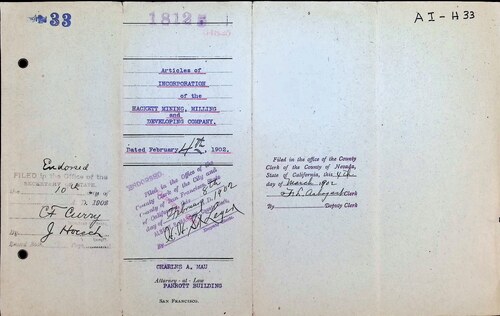 33
Endorsed
FILED in the Office of the
SECRETARY OF STATE,
10th day of
1902
C F Curry
By J Hoesch
1812
Articles of
INCORPORATION
of the
HACKETT MINING, MILLING
and
DEVELOPING COMPANY.
Dated February 4th, 1902.
ENDORSED.
Filed in the Office of the
County Clerk of the City and
County of San Francisco, State
of California, this
day of February 8th 1902
By
Deputy Clerk.
CHARLES A. MAU
Attorney-at-Law
PARROTT BUILDING
SAN FRANCISCO.
AI-H33
Filed in the office of the County
Clerk of the County of Nevada,
State of California, this 4th
day of March 1902
Clerk
By Deputy Clerk